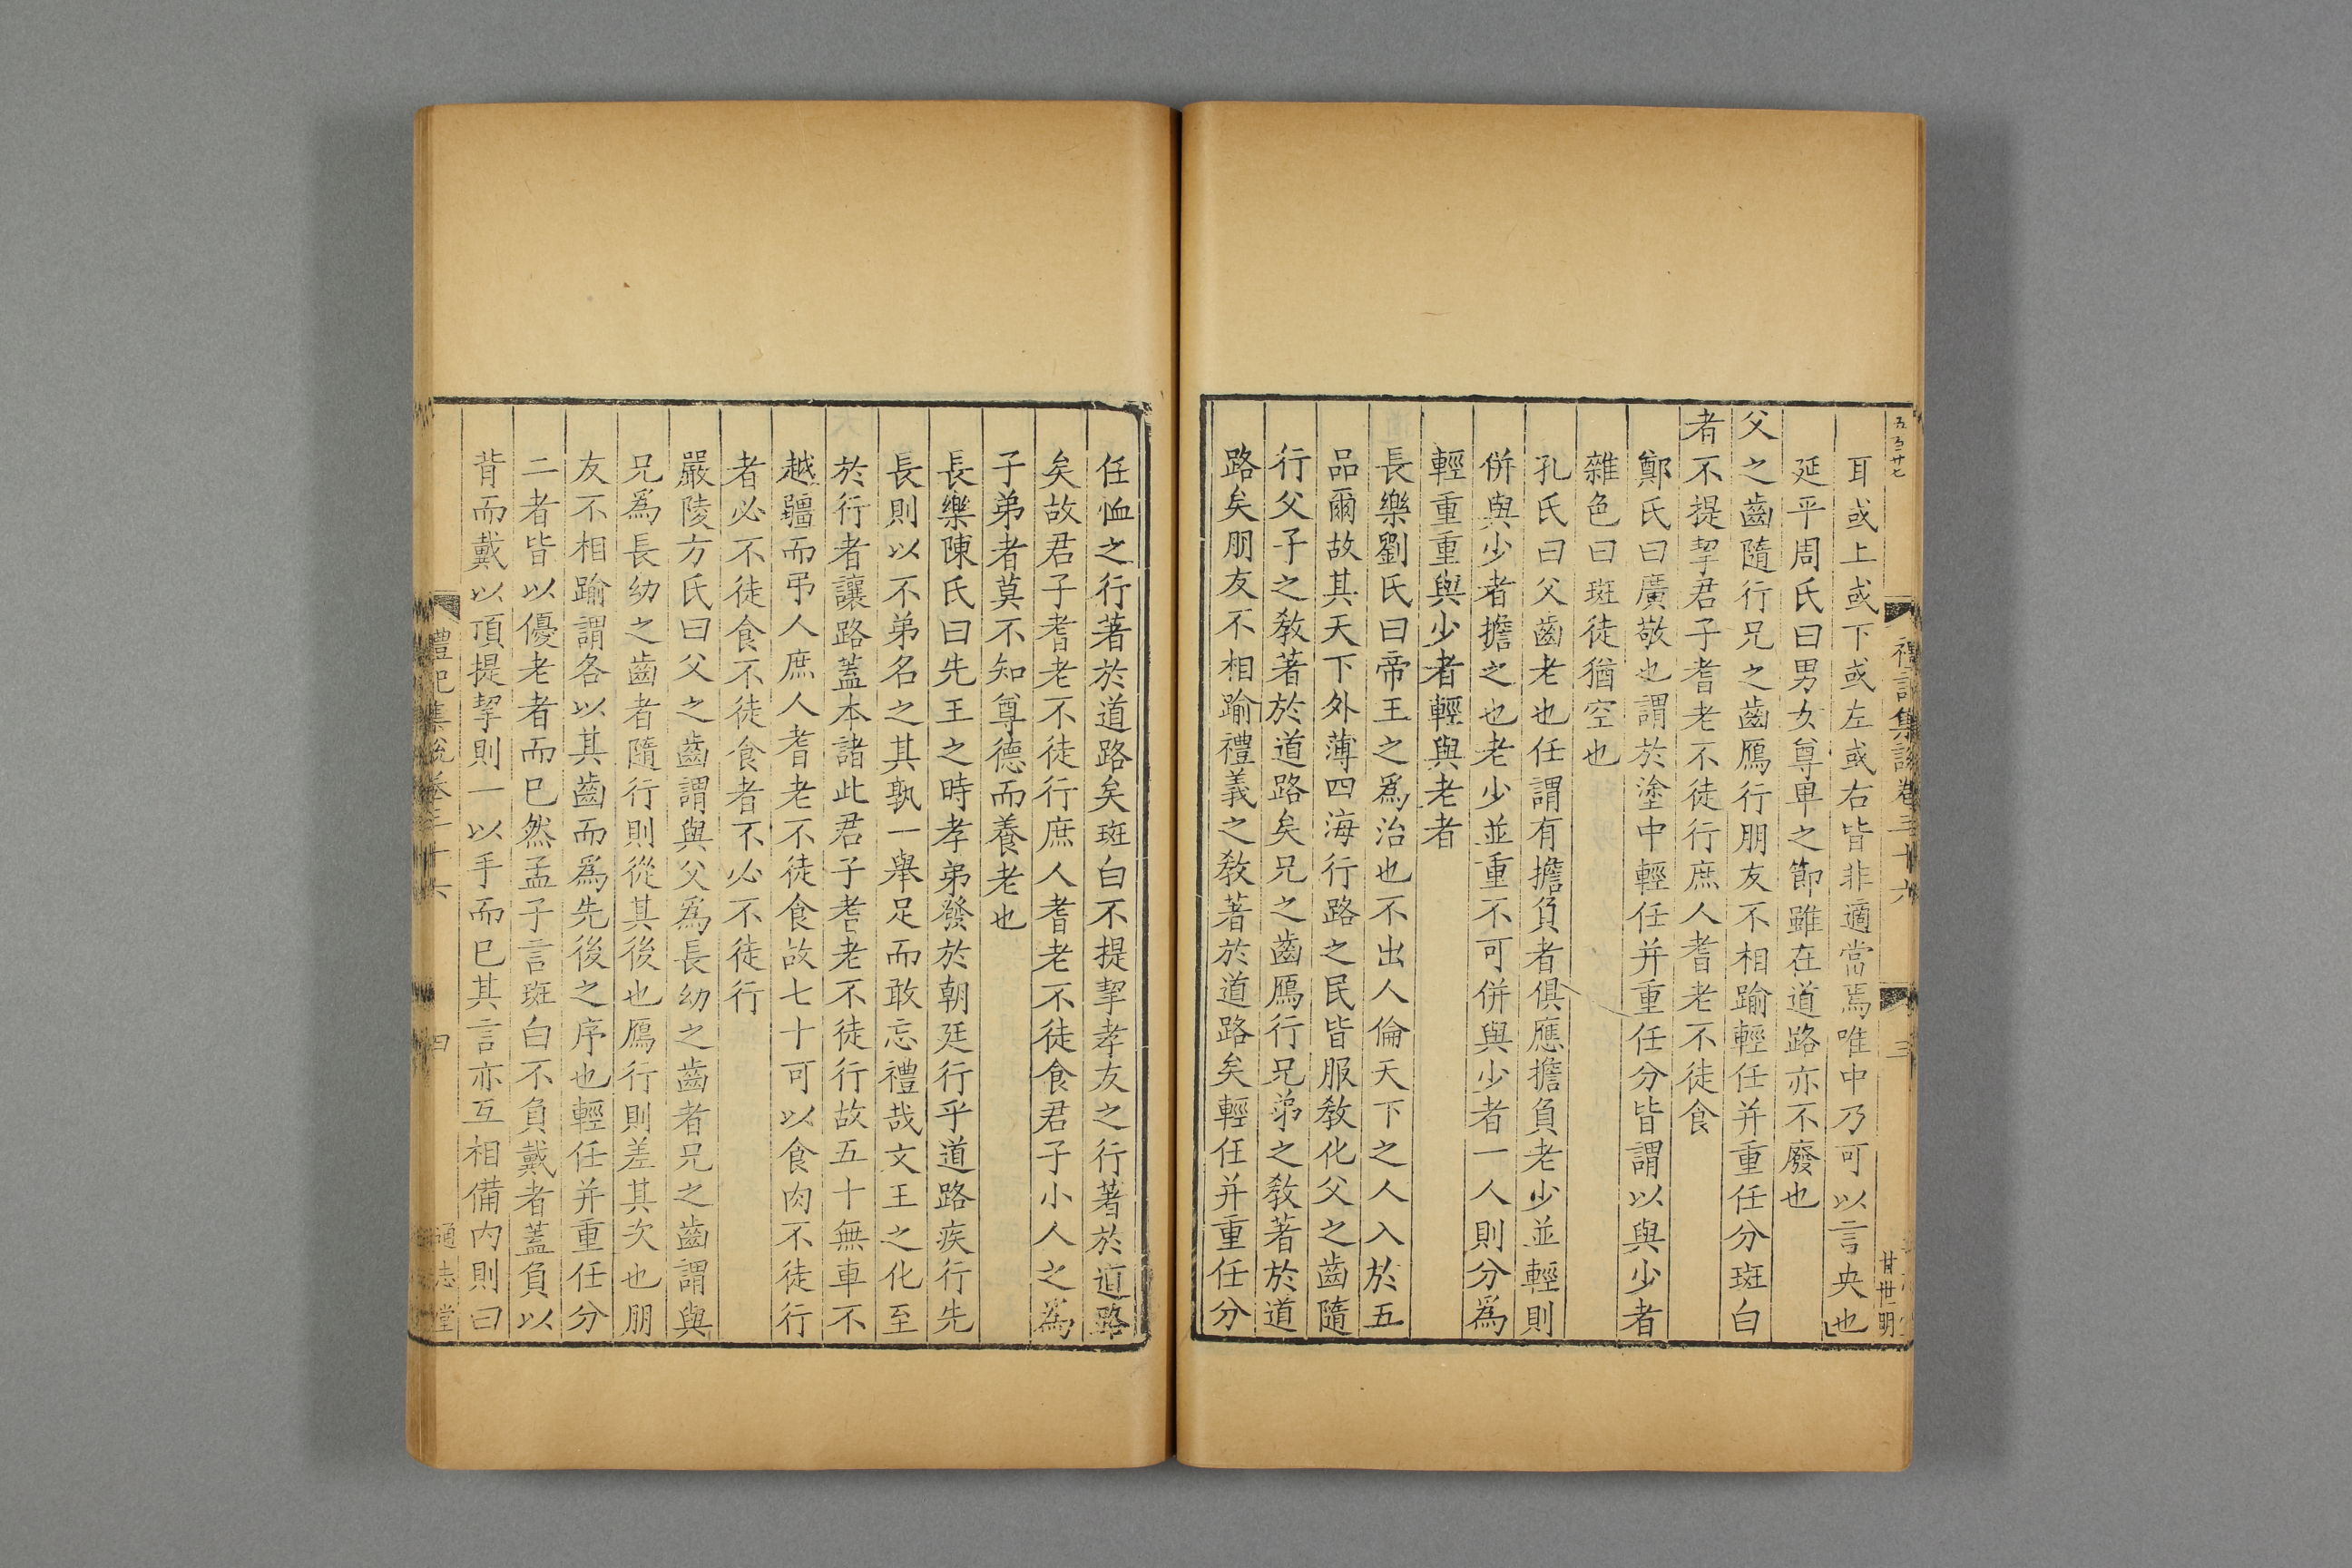 五百廿七
禮記集說卷三十六
三
甘世明
耳或上或下或左或右皆非適當焉唯中乃可以言央也
延平周氏曰男女尊卑之節雖在道路亦不廢也
父之齒隨行兄之齒鴈行朋友不相踰輕任并重任分斑白
者不提挈君子耆老不徒行庶人耆老不徒食
鄭氏曰廣敬也謂於塗中輕任并重任分皆謂以與少者
雜色曰斑徒猶空也
孔氏曰父齒老也任謂有擔負者俱應擔負老少並輕則
併與少者擔之也老少並重不可併與少者一人則分為
輕重重與少者輕與老者
長樂劉氏曰帝王之爲治也不出人倫天下之人入於五
品爾故其天下外薄四海行路之民皆服敎化父之齒隨
行父子之敎著於道路矣兄之齒鴈行兄弟之敎著於道
路矣朋友不相踰禮義之敎著於道路矣輕任并重任分
任恤之行著於道路矣斑白不提挈孝友之行著於道路
矣故君子耆老不徒行庶人耆老不徒食君子小人之為
子弟者莫不知尊德而養老也
長樂陳氏曰先王之時孝弟發於朝廷行乎道路疾行先
長則以不弟名之其孰一舉足而敢忘禮哉文王之化至
於行者讓路蓋本諸此君子耆老不徒行故五十無車不
越疆而弔人庶人耆老不徒食故七十可以食肉不徒行
者必不徒食不徒食者不必不徒行
嚴陵方氏曰父之齒謂與父爲長幼之齒者兄之齒謂與
兄爲長幼之齒者隨行則從其後也鴈行則差其次也朋
友不相踰謂各以其齒而爲先後之序也輕任并重任分
二者皆以優老者而已然孟子言斑白不負戴者蓋負以
背而戴以頂提挈則一以手而已其言亦互相備内則曰
禮記集說卷三十六
四
通志堂